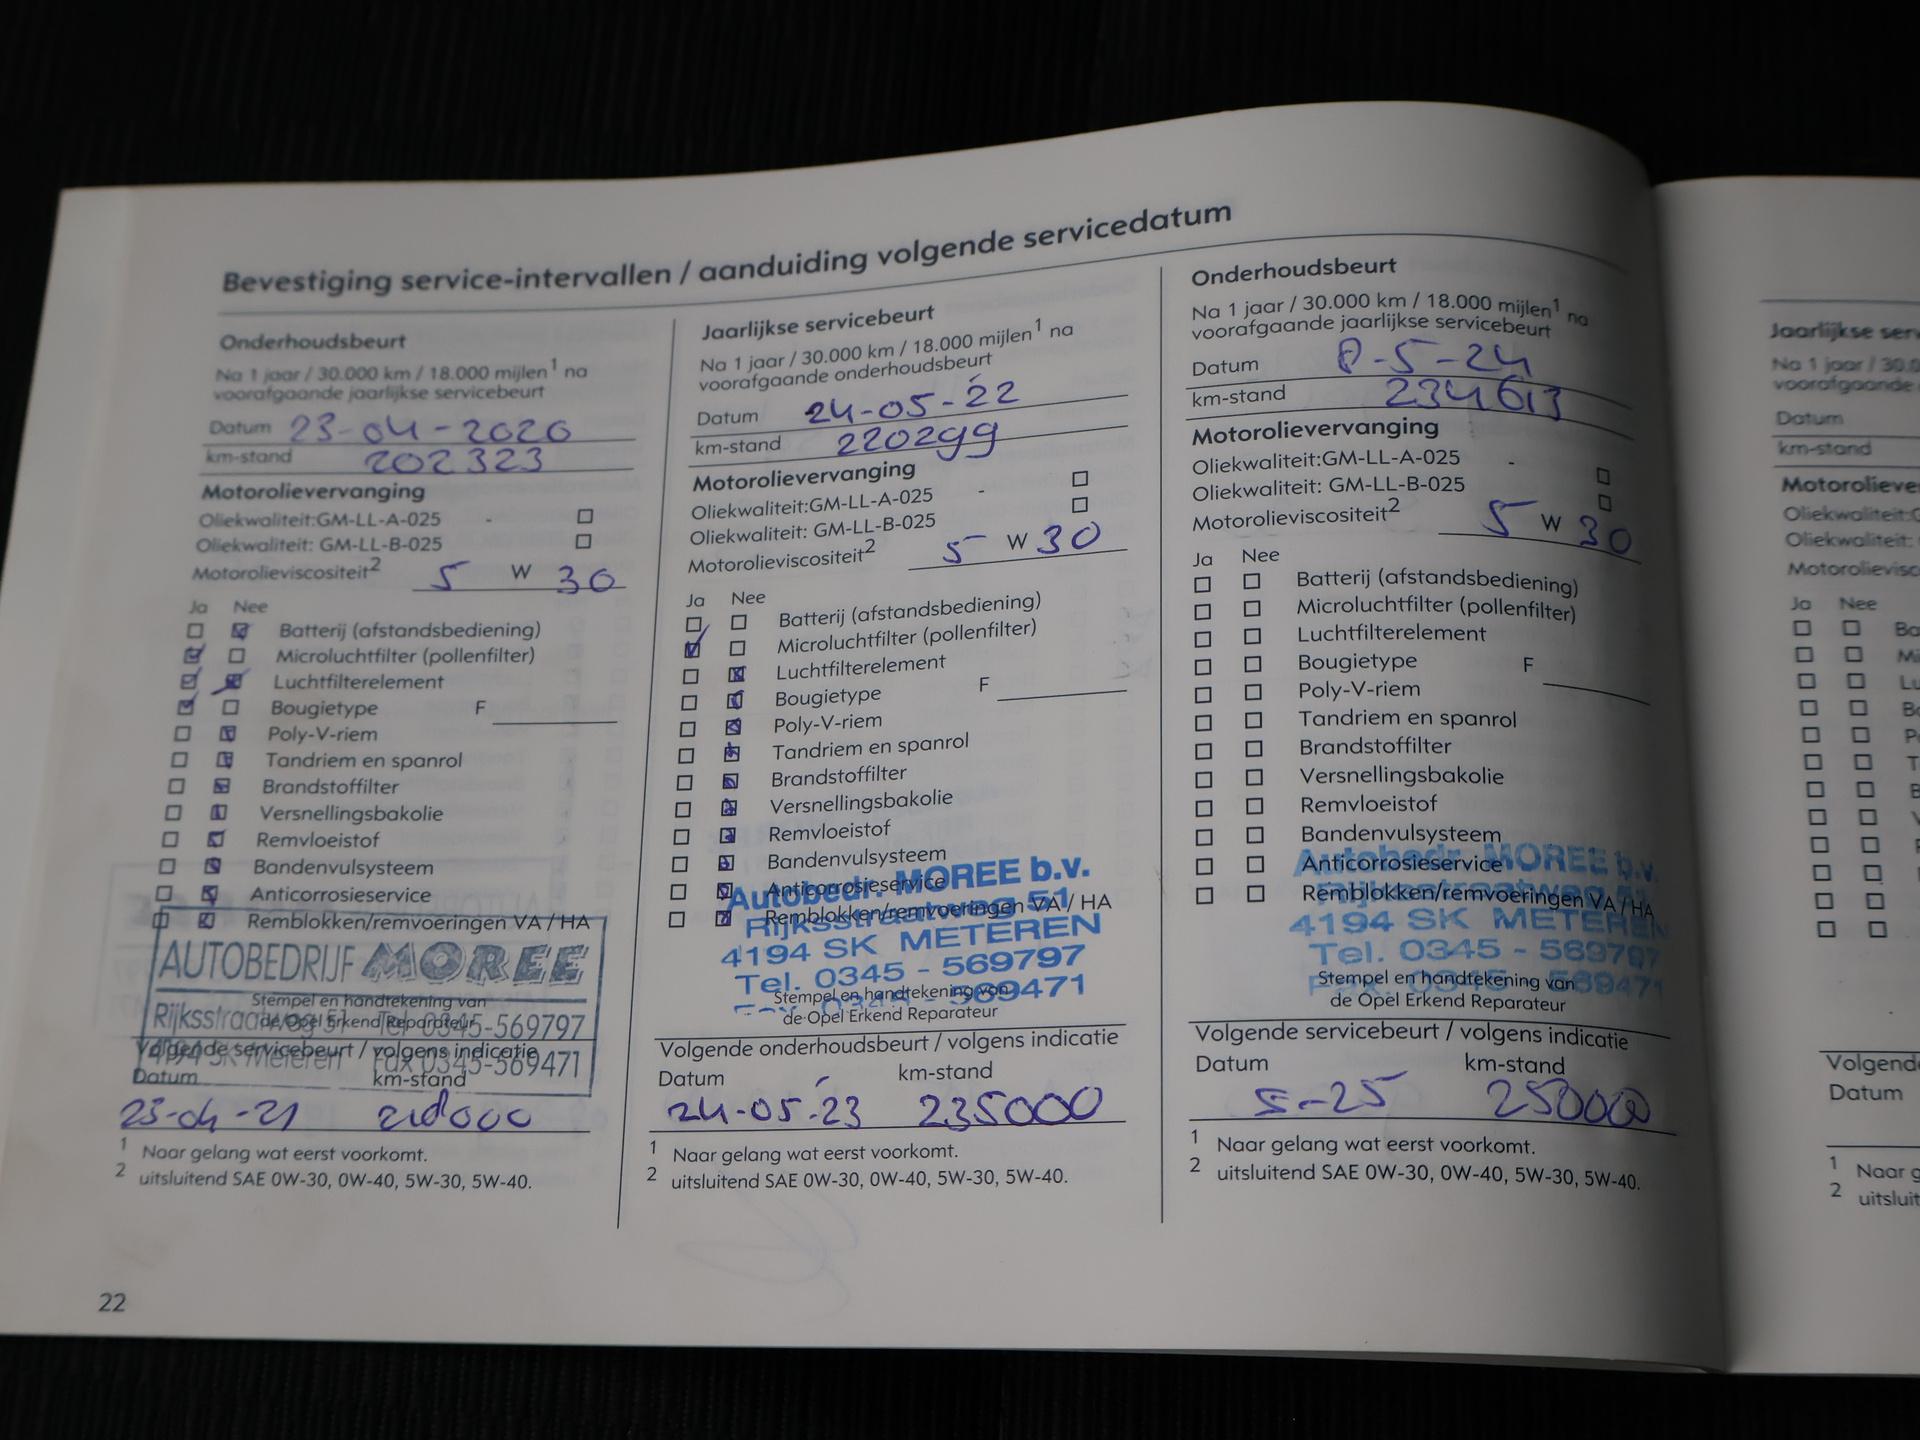 Bevestiging service-intervallen / aanduiding volgende servicedatum
Onderhoudsbeurt
Na 1 jaar / 30.000 km / 18.000 mijlen¹ na
voorafgaande jaarlijkse servicebeurt
Datum 23-04-2020
km-stand 202323
Motorolievervanging
Oliekwaliteit:GM-LL-A-025 -
Oliekwaliteit: GM-LL-B-025
Motorolieviscositeit² 5 W 30
Ja Nee
Batterij (afstandsbediening)
Microluchtfilter (pollenfilter)
Luchtfilterelement
Bougietype F
Poly-V-riem
Tandriem en spanrol
Brandstoffilter
Versnellingsbakolie
Remvloeistof
Bandenvulsysteem
Anticorrosieservice
Remblokken/remvoeringen VA / HA
AUTOBEDRIJF MOREE
Stempel en handtekening van
de Opel Erkend Reparateur
Rijksstraatweg 51 Tel 0345-569797
4194 SK Meteren Fax 0345-569471
Volgende servicebeurt / volgens indicatie
Datum km-stand
23-04-21
¹ Naar gelang wat eerst voorkomt.
² uitsluitend SAE 0W-30, 0W-40, 5W-30, 5W-40.
22
Jaarlijkse servicebeurt
Na 1 jaar / 30.000 km / 18.000 mijlen¹ na
voorafgaande onderhoudsbeurt
Datum 24-05-22
km-stand 220299
Motorolievervanging
Oliekwaliteit:GM-LL-A-025 -
Oliekwaliteit: GM-LL-B-025
Motorolieviscositeit² 5 W 30
Ja Nee
Batterij (afstandsbediening)
Microluchtfilter (pollenfilter)
Luchtfilterelement
Bougietype F
Poly-V-riem
Tandriem en spanrol
Brandstoffilter
Versnellingsbakolie
Remvloeistof
Bandenvulsysteem
Anticorrosieservice
Remblokken/remvoeringen VA / HA
Autobedr. MOREE b.v.
Rijksstraatweg 51
4194 SK METEREN
Tel. 0345 - 569797
Fax. 0345 - 569471
Stempel en handtekening van
de Opel Erkend Reparateur
Volgende onderhoudsbeurt / volgens indicatie
Datum km-stand
24-05-23 235000
¹ Naar gelang wat eerst voorkomt.
² uitsluitend SAE 0W-30, 0W-40, 5W-30, 5W-40.
Onderhoudsbeurt
Na 1 jaar / 30.000 km / 18.000 mijlen¹ na
voorafgaande jaarlijkse servicebeurt
Datum
km-stand 234613
Motorolievervanging
Oliekwaliteit:GM-LL-A-025 -
Oliekwaliteit: GM-LL-B-025
Motorolieviscositeit² 5 W 30
Ja Nee
Batterij (afstandsbediening)
Microluchtfilter (pollenfilter)
Luchtfilterelement
Bougietype F
Poly-V-riem
Tandriem en spanrol
Brandstoffilter
Versnellingsbakolie
Remvloeistof
Bandenvulsysteem
Anticorrosieservice
Remblokken/remvoeringen VA / HA
Autobedr. MOREE b.v.
Rijksstraatweg 51
4194 SK METEREN
Tel. 0345 - 569797
Fax. 0345 - 569471
Stempel en handtekening van
de Opel Erkend Reparateur
Volgende servicebeurt / volgens indicatie
Datum km-stand
5-25 250000
¹ Naar gelang wat eerst voorkomt.
² uitsluitend SAE 0W-30, 0W-40, 5W-30, 5W-40.
Jaarlijkse
Na 1 jaar / 30.0
voorafgaande
Datum
km-stand
Oliekwaliteit:
Ja Nee
Datum
¹ Naar
²